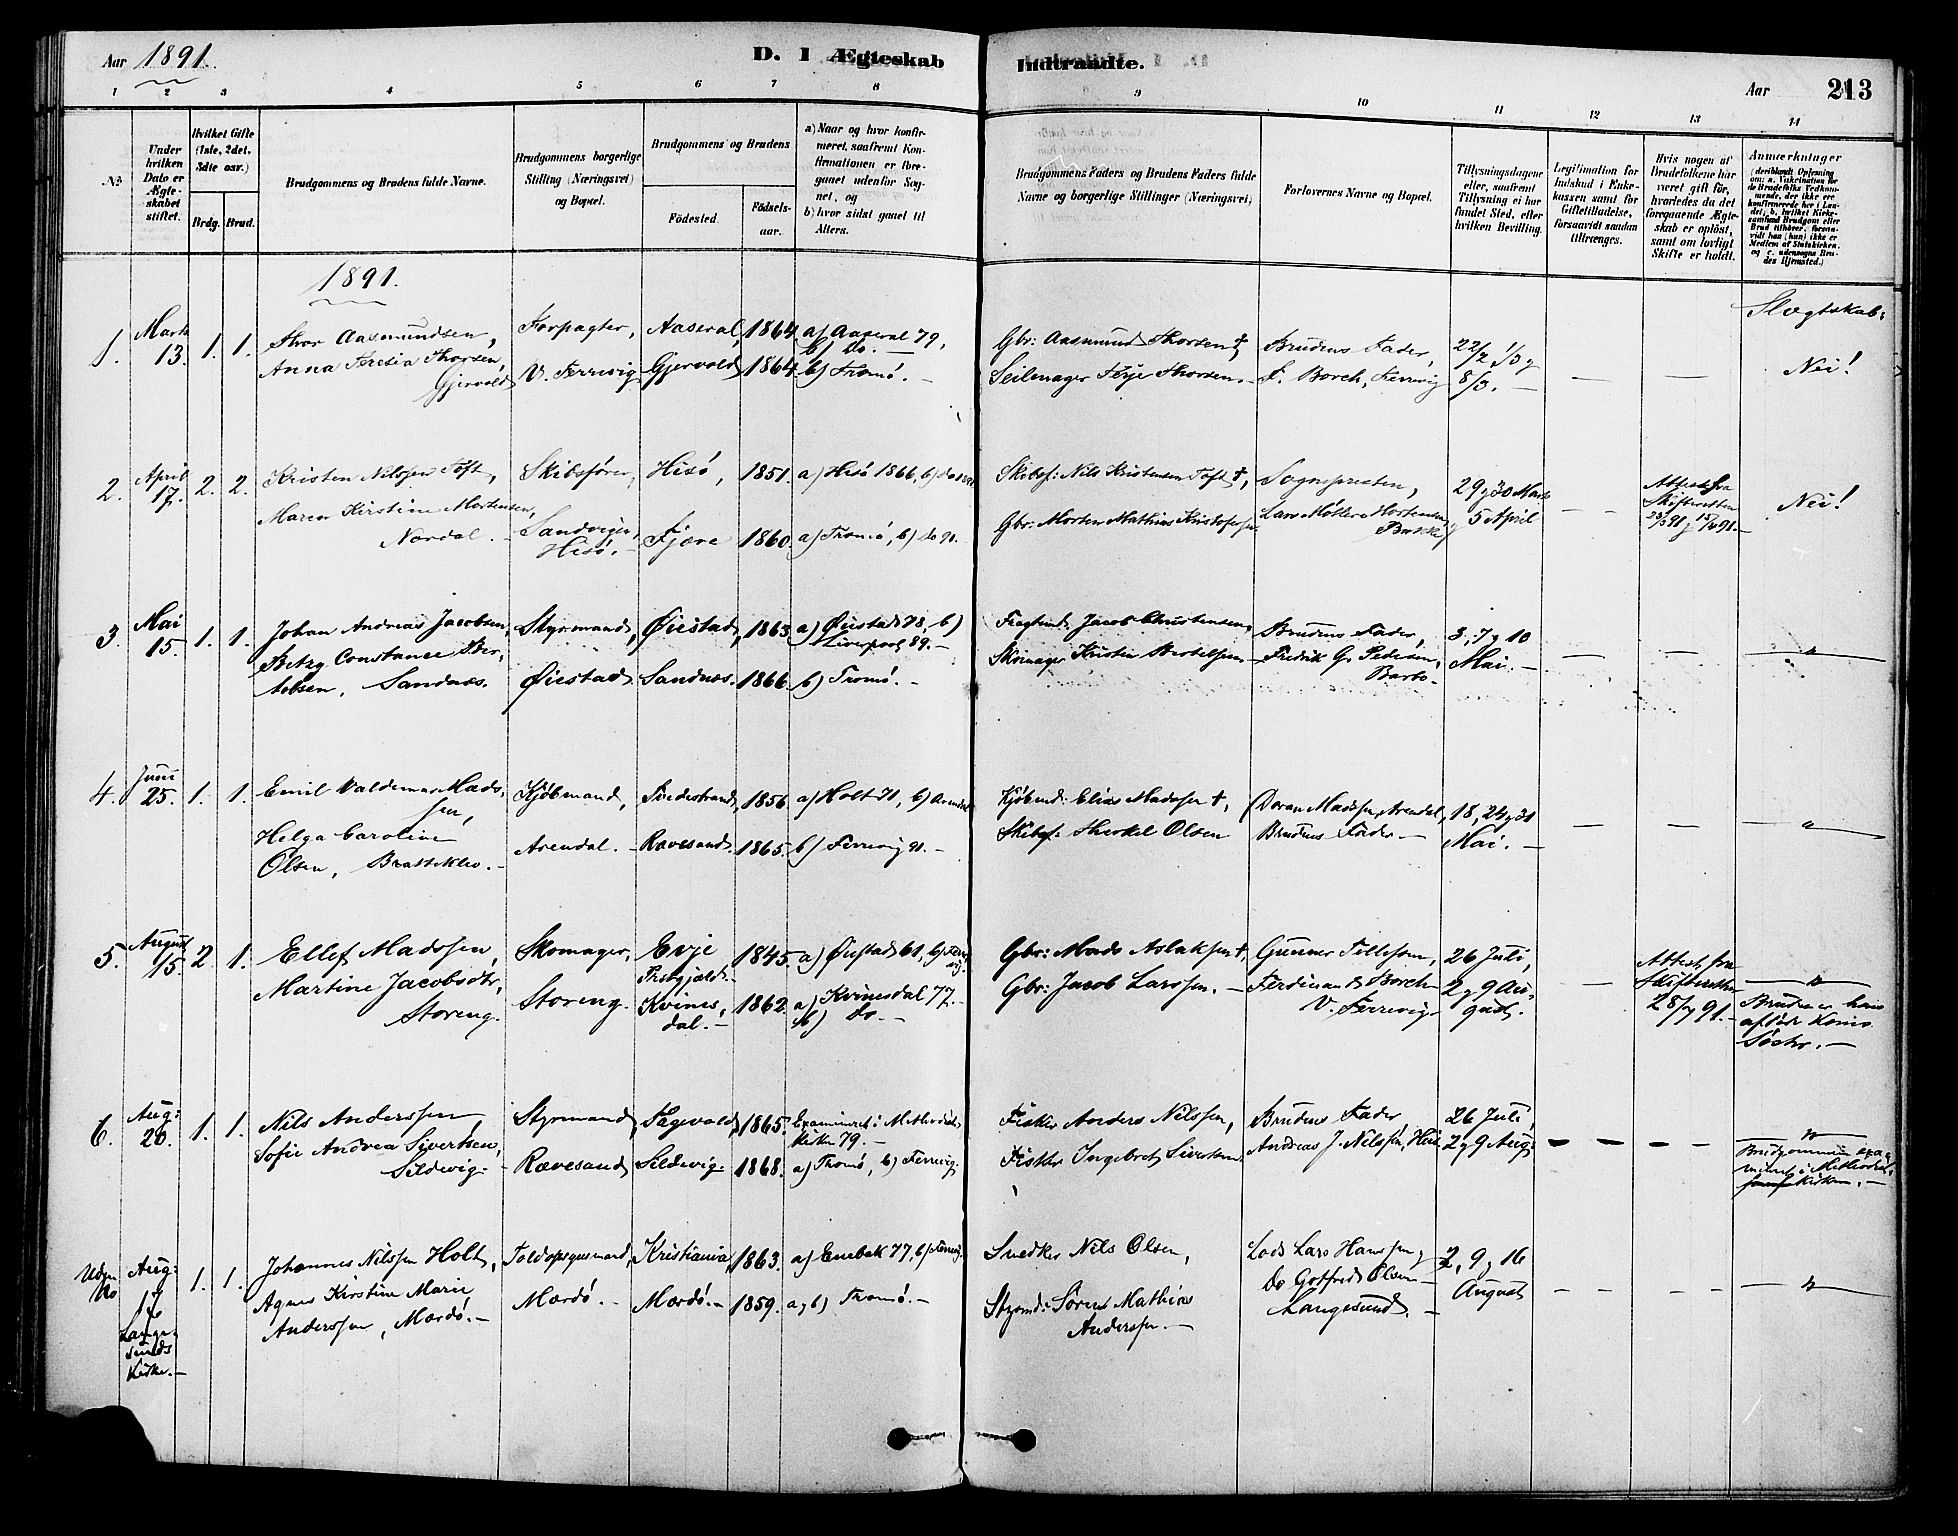 Aar 1891.
D. I Ægteskab Indtraadte.
Aar 213
1 2 3 4 5 6 7 8 9 10 11 12 13 14
№
Under hvilken Dato er Ægteskabet stiftet.
Hvilket Gifte (1ste, 2det, 3die osv.)
Brdg. Brud.
Brudgommens og Brudens fulde Navne.
Brudgommens borgerlige Stilling (Næringsvei) og Bopæl.
Brudgommens og Brudens
Födested. Födsels-aar.
a) Naar og hvor konfirmeret, saafremt Konfirmationen er foregaaet udenfor Sognet, og
b) hvor sidst gaaet til Alters.
Brudgommens Faders og Brudens Faders fulde Navne og borgerlige Stillinger (Næringsvei)
Forlovernes Navne og Bopæl.
Tillysningsdagene eller, saafremt Tillysning ei har fundet Sted, efter hvilken Bevilling.
Legitimation for Indskud i Enkekassen samt for Giftetilladelse, forsaavidt saadan tiltrænges.
Hvis nogen af Brudefolkene har været gift før, hvorledes da det foregaaende Ægteskab er oplöst, samt om lovligt Skifte er holdt.
Anmærkninger
1891.
1. Marts 13. 1. 1.
Thor Aasmundsen,
Anna Teresia Thorsen,
Gjervold
Forpagter,
V. Ferrevig
Aaseral, 1864.
Gjervold 1864.
a) Aaseral 79,
b) Do. —
b) Tromö. —
Gbr: Aasmund Thorsen †,
Seilmager Terje Thorsen. —
Brudens Fader,
F. Borch, Ferrevig
22/2 1/3 og
8/3. —
— —
Slægtskab:
Nei!
2. April 17. 2. 2.
Kristen Nilssen Toft,
Maren Kirstine Mortensen,
Nærdal. —
Skibsfører,
Sandvigen,
Hisö. —
Hisö, 1851.
Fjære 1860.
a) Hisö 1866, b)
a) Tromö, b) do 90.
Skibsf: Nils Kristensen Toft †,
Gbr: Morten Mathias Kristofersen
Sognepresten,
Lars Möller Mortensen,
29 og 30 Marts
og 5 April
— —
Attest fra
Skifteretten
Nei!
3. Mai 15. 1. 1.
Johan Andreas Jacobsen,
Betzy Constance Ber-
telsen, Sandnæs.
Styrmand,
Øiestad
Øiestad, 1863.
Sandnæs. 1866.
a) Øiestad 78, b)
Liverpool 89. —
b) Tromö. —
Jacob Christensen,
Skomager Kristen Bertelsen
Brudens Fader,
Fredrik G. Pedersen,
Barbo.
3, 7 og 10
Mai. —
— —
4. Juni 25. 1. 1.
Emil Valdemar Mads-
sen,
Helga Caroline
Olsen, Bratteklev. —
Kjöbmand,
Arendal. —
Tvedestrand, 1856.
Rævesand. 1865.
a) Holt 71, b) Arendal
b) Ferrevig 91. —
Kjöbmd: Elias Madssen †,
Skibsf: Therkel Olsen
Madssen, Arendal,
Brudens Fader —
18, 24 og 31
Mai. —
— —
5. August 15. 2. 1.
Ellef Madssen,
Martine Jacobsdtr,
Storeng.
Skomager,
Storeng.
Evje
Prstgjæld. 1845.
Kvines-
dal. — 1862.
a) Øiestad 61, b) Ferrevig.
a) Kvinesdal 77. —
b) Do. —
Gbr: Mads Aslaksen †,
Gbr: Jacob Larssen. —
Gunner Tellefsen,
Ferdinand Borch
V. Ferrevig
26 Juli,
2 og 9 Au-
gust.
—
Attest fra
Skifteretten
28/7 91. —
Bruden er hans
afdøde Kones
Söster. —
6. Aug: 20. 1. 1.
Nils Anderssen,
Sofie Andrea Sivertsen,
Sildevig. —
Styrmand,
Rævesand
1865.
Sildevig. 1868.
Examineret i Methodist-
kirken 79. —
a) Tromö, b) Ferrevig.
Fisker Anders Nilssen,
Fisker Ingebret Sivertsen.
Brudens Fader
Andreas J. Nilssen,
26 Juli,
2 og 9 Aug:
— — — —
Brudgommen exa-
mineret i Methodist-
kirken. —
Uden
No
Aug:
Lange-
sunds
Kirke. —
1. 1.
Johannes Nilssen Holt,
Agnes Kirstine Marie
Anderssen, Mærdö. —
Toldopsynsmand,
Mærdö. —
Kristiania, 1863.
Mærdö. — 1859.
a) Enebak 77, b) Ferrevig.
a og b) Tromö. —
Snedker Nils Olsen,
Styrmd: Sören Mathias
Anderssen. —
Lods Lars Hanssen og
Do Gotfred Olsen —
Langesund. —
2, 9 og 16
August
— — — —